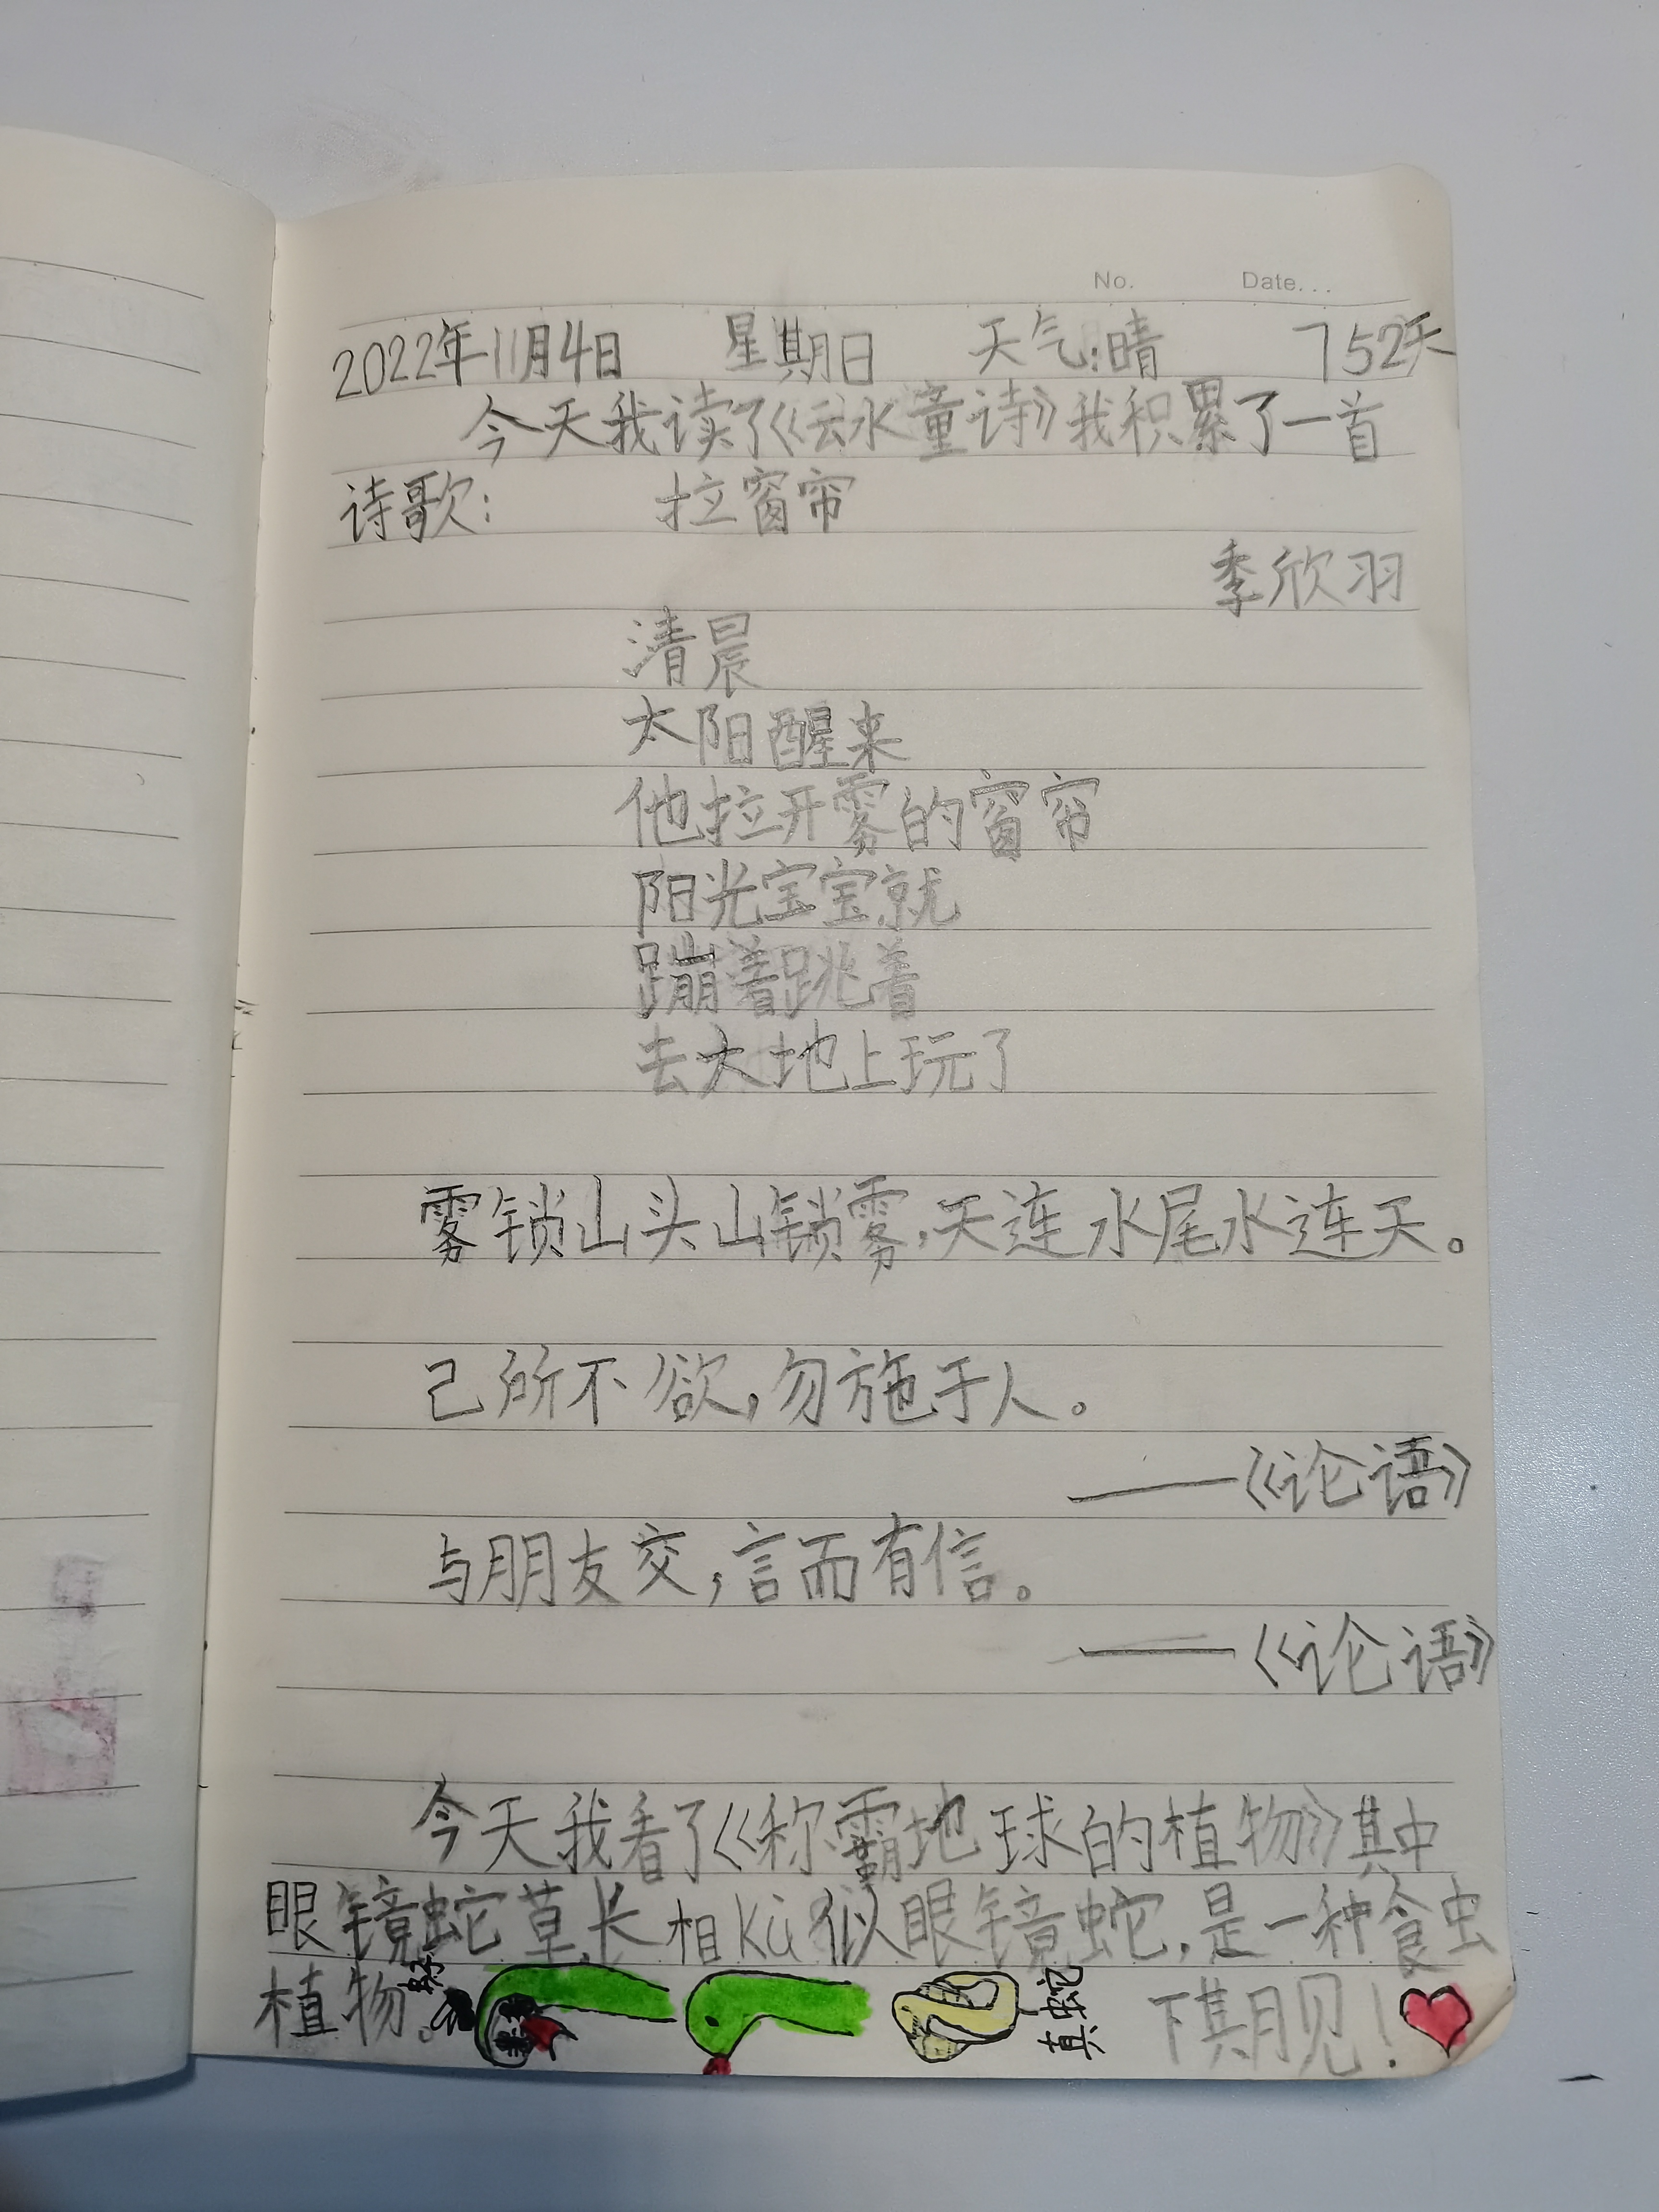 No. Date...
2022年11月4日 星期日 天气:晴 752天
今天我读了《云水童诗》我积累了一首
诗歌: 拉窗帘
季欣羽
清晨
太阳醒来
他拉开雾的窗帘
阳光宝宝就
蹦着跳着
去大地上玩了
雾锁山头山锁雾,天连水尾水连天。
己所不欲,勿施于人。
——《论语》
与朋友交,言而有信。
——《论语》
今天我看了《称霸地球的植物》其中
眼镜蛇草,长相kù似眼镜蛇,是一种食虫
植物。
真蛇
下期见!